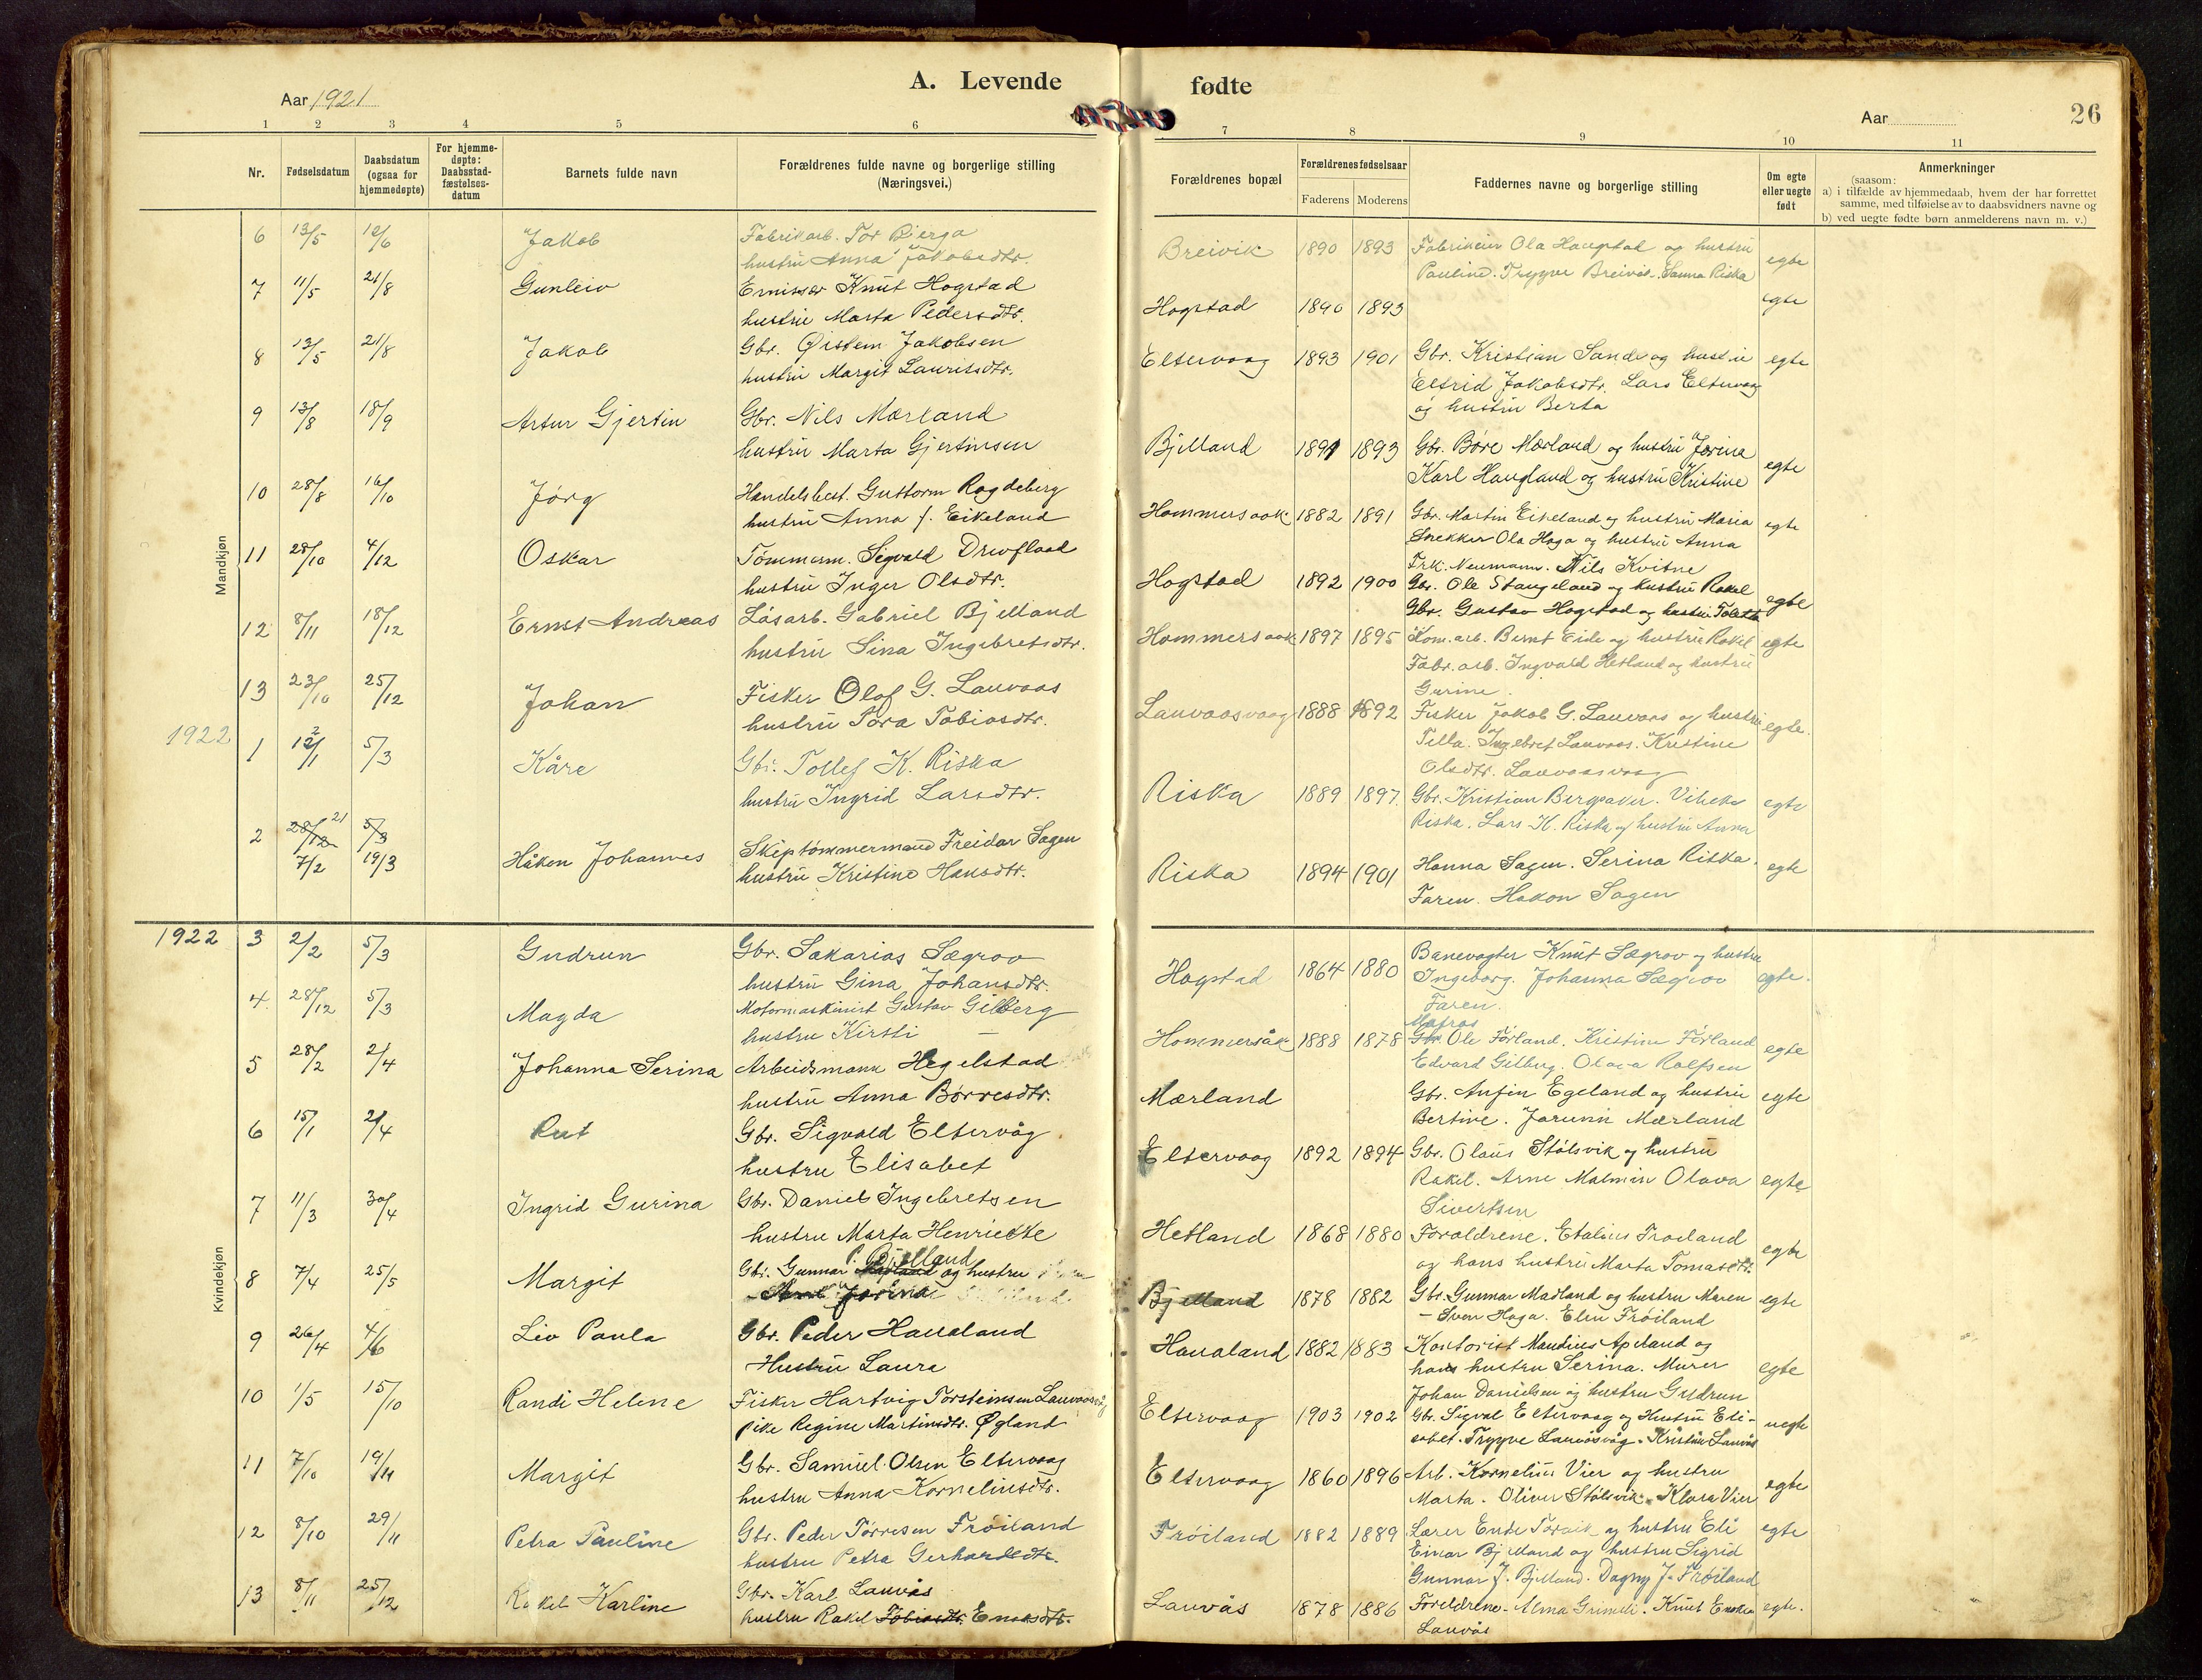 A. Levende fødte
Aar 1921
Aar
26
1 2 3 4 5 6 7 8 9 10 11
Nr.
Fødselsdatum
Daabsdatum (ogsaa for hjemmedøpte)
For hjemme-døpte: Daabsstad-fæstelses-datum
Barnets fulde navn
Forældrenes fulde navne og borgerlige stilling (Næringsvei.)
Forældrenes bopæl
Forældrenes fødselsaar
Faderens Moderens
Faddernes navne og borgerlige stilling
Om egte eller uegte født
Anmerkninger
(saasom:
a) i tilfælde av hjemmedaab, hvem der har forrettet samme, med tilføielse av to daabsvidners navne og
b) ved uegte fødte børn anmelderens navn m. v.)
Mandkjøn
6 13/5 12/6 Jakob Fabrikarb. Tor Bjerga Breivik 1890 1893 Fabrikeier Ola Haugstad og hustru egte
hustru Anna Jakobsdtr. Pauline. Trygve Breivik. Sanna Riska
7 11/5 21/8 Gunleiv Emissær Knut Hogstad Hogstad 1890 1893 egte
hustru Marta Pedersdtr.
8 13/5 21/8 Jakob Gbr. Øistein Jakobsen Eltervaag 1893 1901 Gbr. Kristian Sande og hustru egte
hustru Margit Lauritsdtr. Elfrid Jakobsdtr. Lars Eltervaag
og hustru Berta
9 13/8 18/9 Artur Gjertin Gbr. Nils Mærland Bjelland 1891 1893 Gbr. Børe Mærland og hustru Jorina egte
hustru Marta Gjertinsen Karl Haugland og hustru Kristine
10 28/8 16/10 Jørg Handelsbest. Guttorm Ragdeberg Hommersaak 1882 1891 Gbr. Martin Eikeland og hustru Maria egte
hustru Anna f. Eikeland Snekker Ola Haga og hustru Anna
Frk. Neumann. Nils Kvitne
11 28/10 4/12 Oskar Tømmerm. Sigvald Drevflaad Hogstad 1892 1900 Gbr. Ole Stangeland og hustru Rakel egte
hustru Inger Olsdtr. Gbr. Gustav Hogstad og hustru
12 8/11 18/12 Ernst Andreas Løsarb. Gabriel Bjelland Hommersaak 1897 1895 Kom.arb. Bernt Eide og hustru Rakel egte
hustru Sina Ingebretsdtr. Fabr. arb. Ingvald Hetland og hustru
Gurine.
13 23/10 25/12 Johan Fisker Olaf G. Lauvaas Lauvaasvaag 1888 1892 Fisker Jakob G. Lauvaas og hustru egte.
hustru Tora Tobiasdtr. Tilla. Ingebret Lauvaas. Kristine
Olsdtr. Lauvaasvaag
1922 1 12/1 5/3 Kåre Gbr. Tollef K. Riska Riska 1889 1897 Gbr. Kristian Bergsaker. Viheka egte
hustru Ingrid Larsdtr. Riska. Lars K. Riska og hustru Anna
2 28/12 21 5/3
7/2 19/3 Håken Johannes Skipstømmermand Freidar Sagen Riska 1894 1901 Hanna Sagen. Serina Riska. egte
hustru Kristine Hansdtr. Faren. Hakon Sagen
Kvindekjøn
1922 3 2/2 5/3 Gudrun Gbr. Sakarias Sægrov Hogstad 1864 1880 Banevogter Knut Sægrov og hustru egte.
hustru Gina Johansdtr. Ingeborg. Johanna Sægrov
Faren.
4 28/12 5/3 Magda Motormaskinist Gustav Gilberg Hommersåk 1888 1878 Matros Gbr Ole Førland. Kristine Førland egte
hustru Kirsti — Edvard Gilberg. Olava Rolfsen
5 28/2 2/4 Johanna Serina Arbeidsmann Hegelstad Mærland Gbr. Anfin Egeland og hustru egte
hustru Anna Børresdtr. Bertine. Jorunn Mærland
6 15/1 2/4 Rut Gbr. Sigvald Eltervåg Eltervaag 1892 1894 Gbr. Olaus Stølsvik og hustru egte
hustru Elisabet Rakel. Arne Malmin Olava
Sivertsen
7 11/3 30/4 Ingrid Gurina Gbr. Daniel Ingebretsen Hetland 1868 1880 Foreldrene. Etalius Frøiland egte
hustru Marta Henriette og hans hustru Marta Tomasdtr.
8 7/4 25/5 Margit Gbr. Gunnar P. Bjelland og hustru Bjelland 1878 1882 Gbr. Gunnar Madland og hustru Maren egte
Jorina — Sven Haga. Elen Frøiland
9 26/4 4/6 Liv Paula Gbr. Peder Haualand Haualand 1882 1883 Kontorist Maudius Apeland og egte
Hustru Laura hans hustru Serina. Murer
Johan Danielsen og hustru Gudrun
10 1/5 15/10 Randi Helene Fisker Hartvig Torsteinsen Lauvaasvåg Eltervaag 1903 1902 Gbr. Sigval Eltervaag og Hustru Eli- uegte
pike Regine Martinsdtr. Øgland sabet. Trygve Lauvåsvåg. Kristine Lauvås
11 7/10 19/11 Margit Gbr. Samuel Olsen Eltervaag Eltervaag 1860 1896 Arb. Kornelius Vier og hustru egte
hustru Anna Korneliusdtr. Marta. Oliver Stølsvik. Klara Vier
12 8/10 29/11 Petra Pauline Gbr. Peder Tørresen Frøiland Frøiland 1882 1889 Lærer Ende Torvik og hustru Eli egte
hustru Petra Gerhardsdtr. Einar Bjelland og hustru Sigrid
Gunnar J. Bjelland. Dagny J. Frøiland
13 8/11 25/12 Rakel Karline Gbr. Karl Lauvås Lauvås 1878 1886 Foreldrene. Alma Grimsli. Knut egte.
hustru Rakel Tobiasdtr. Enoksdtr. Lauvås